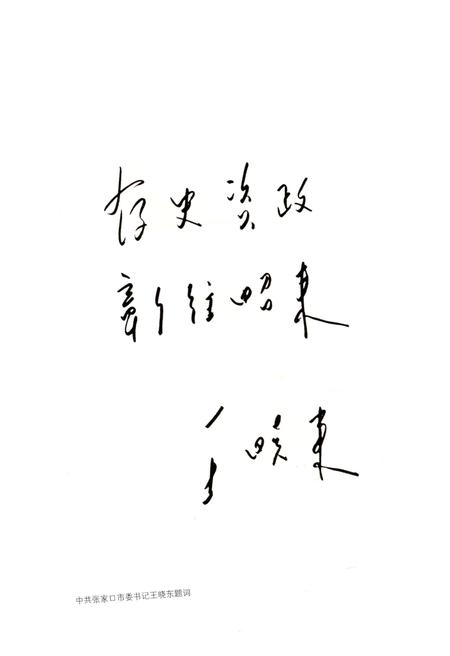 存史资政
彰往昭來
王晓東
中共张家口市委书记王晓东题词